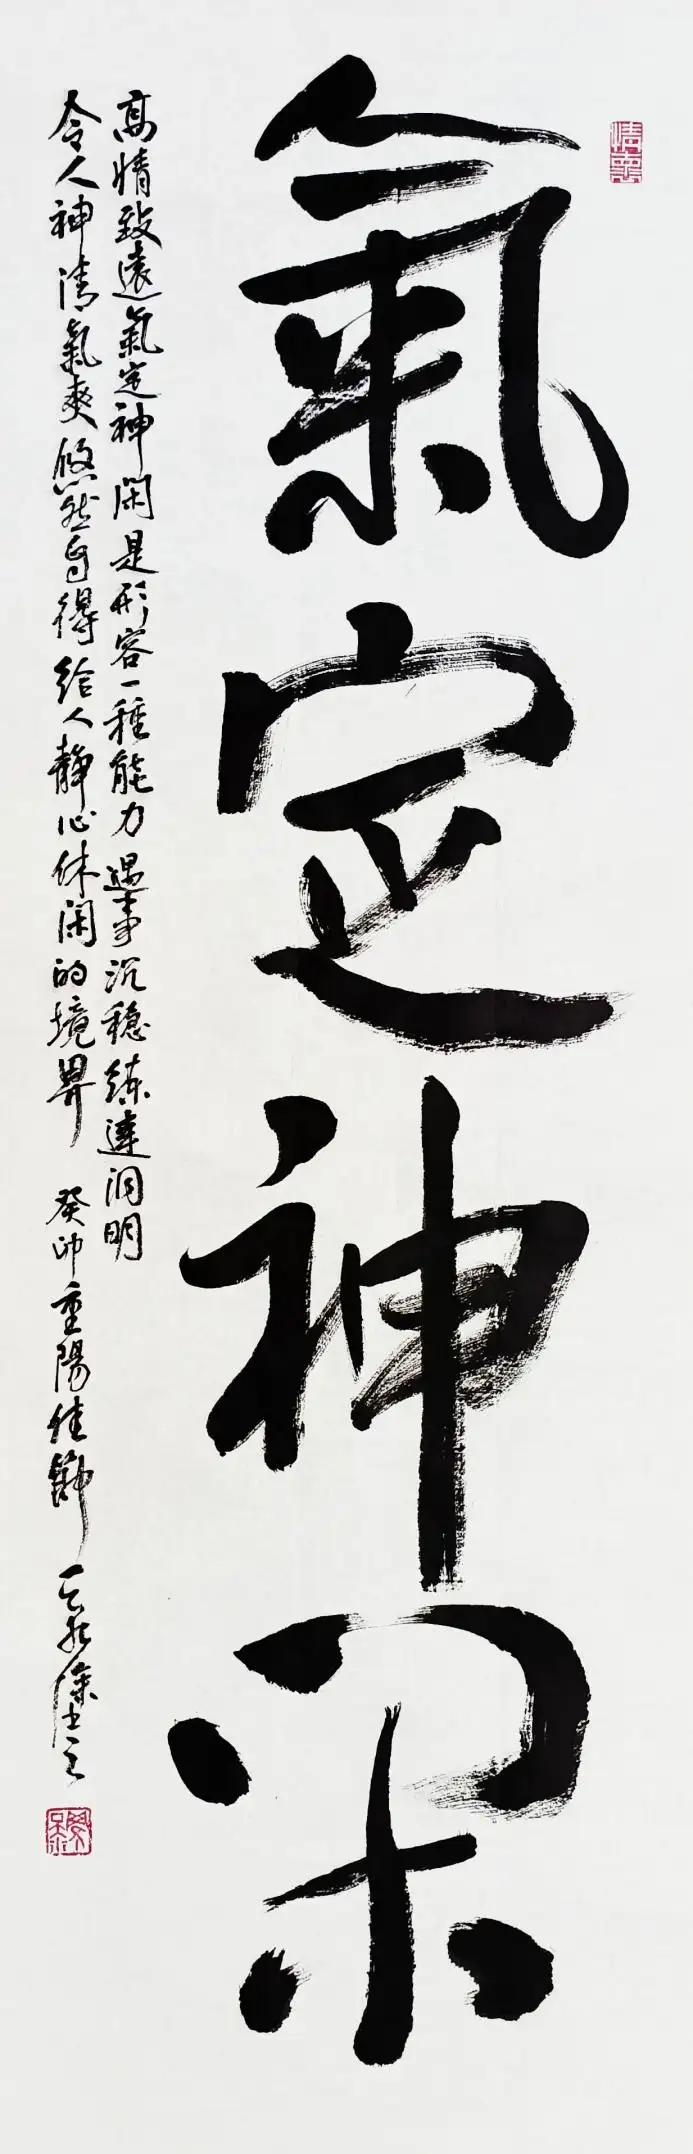 氣定神閑
高情致遠氣定神閑是形容一種能力遇事沉穩練達洞明
令人神清氣爽悠然自得給人靜心休閑的境界 癸卯重陽佳節